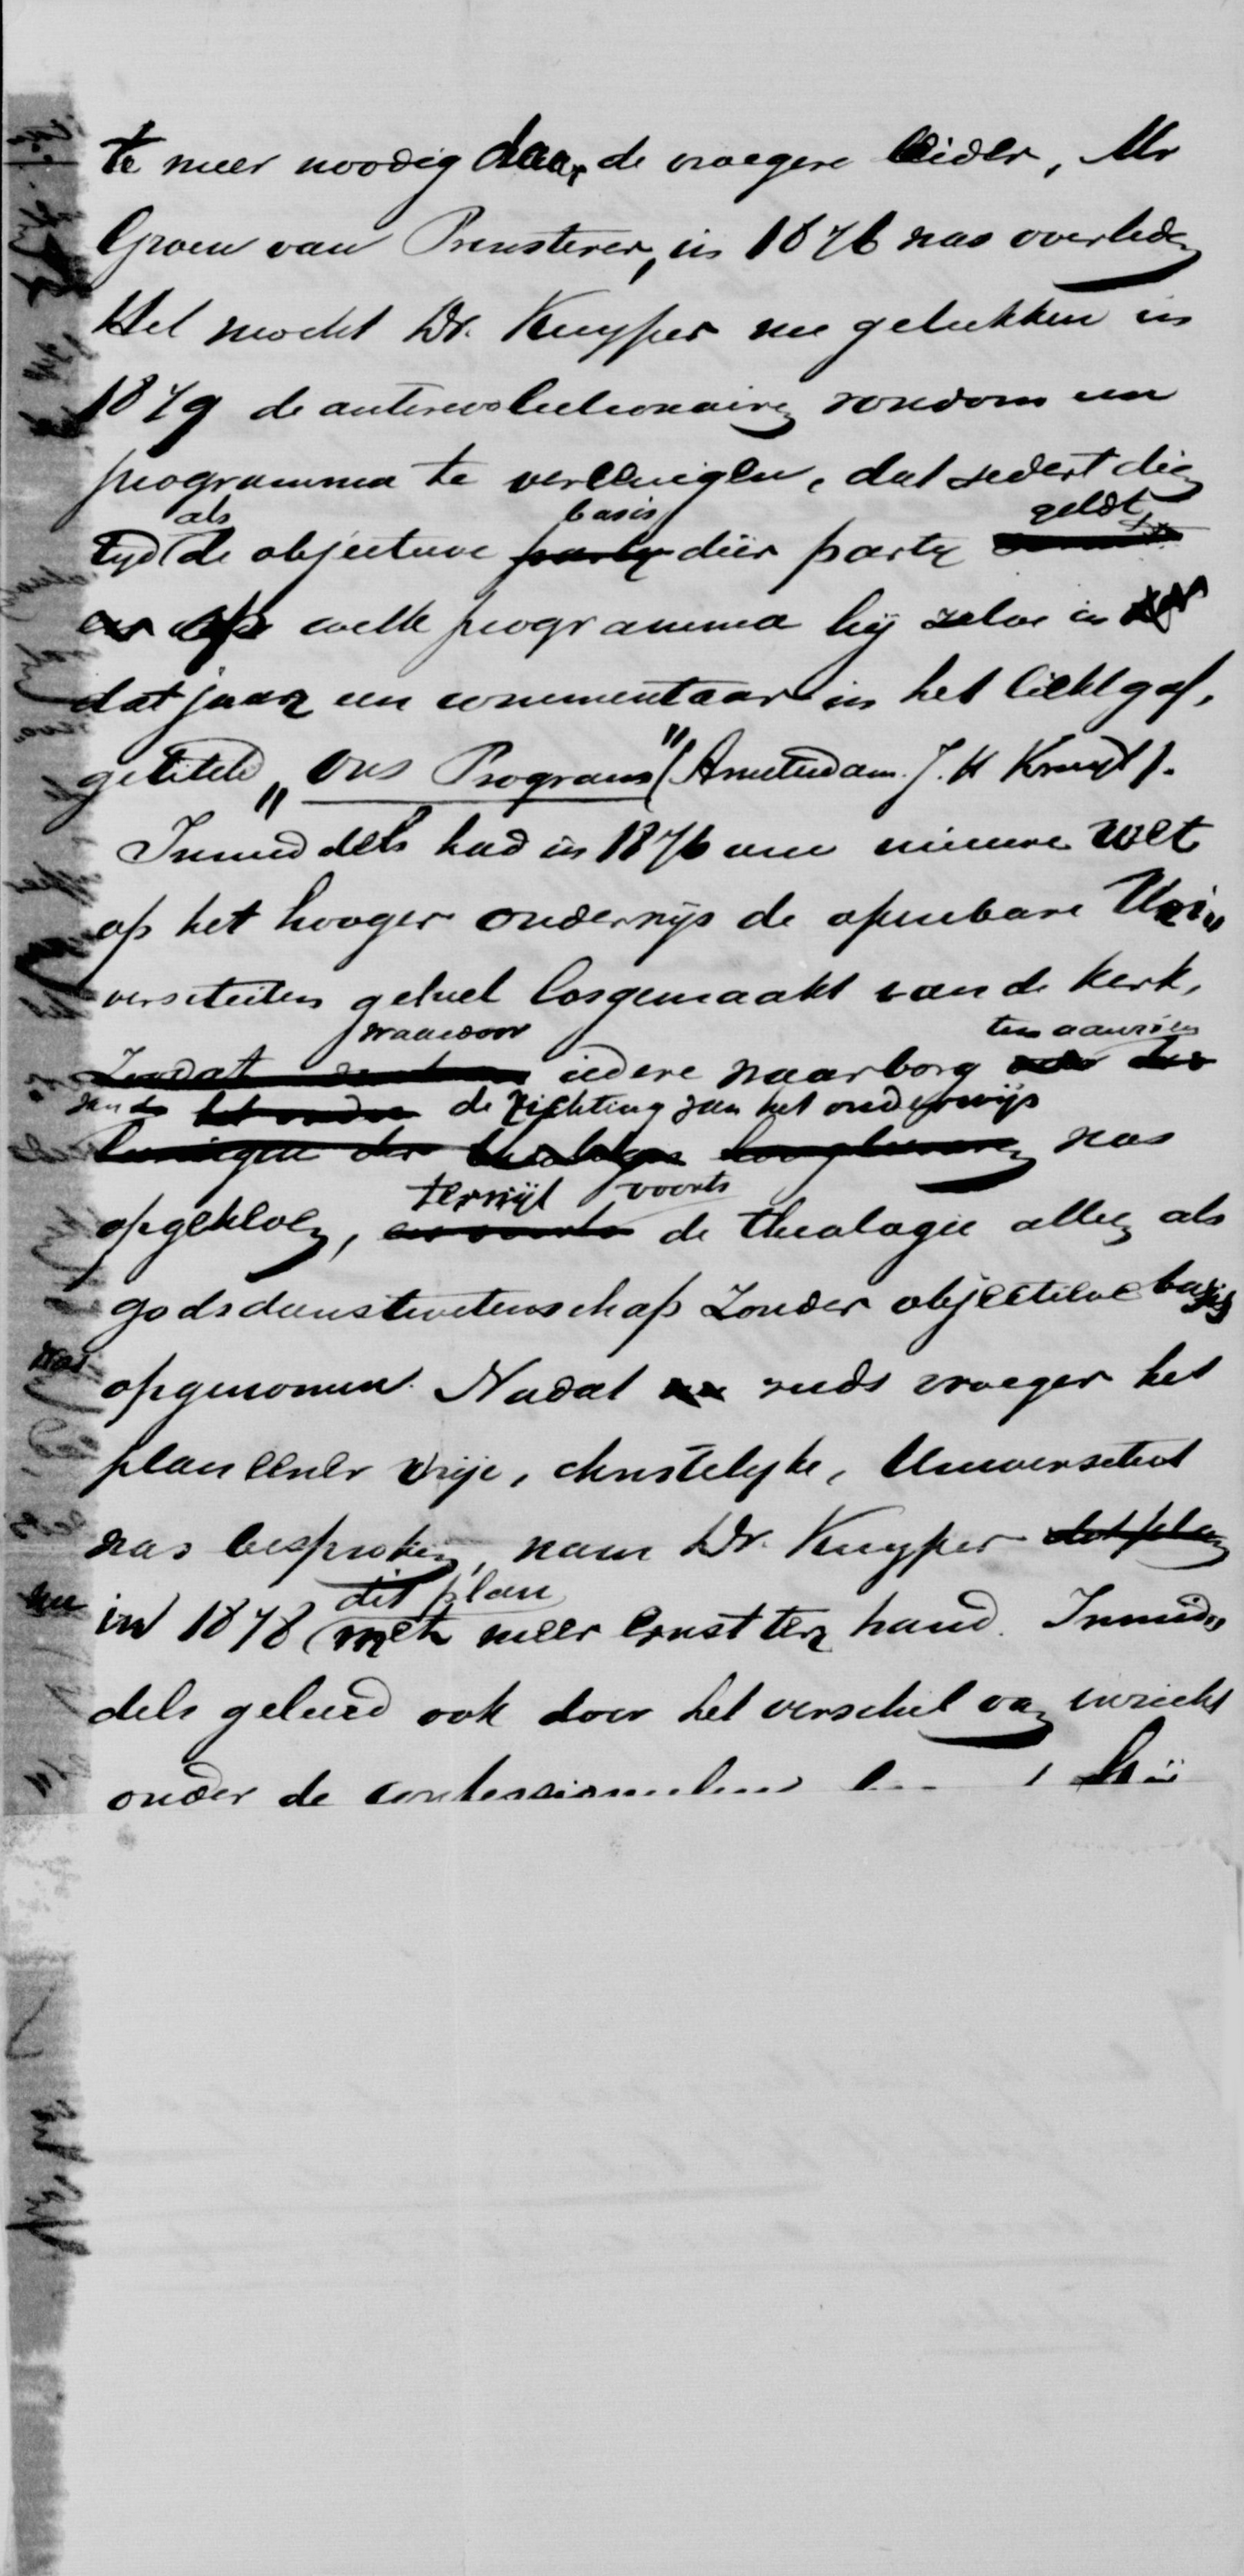 te meer noodig daar de vroegere leider, Mr
Groen van Prinsterer, in 1876 was overleden
Het mocht Dr. Kuyper nu gelukken in
1879 de antirevolutionairen rondom een
programma te vereenigen, dat sedert dien
tyd als de objectieve party basis dier party geldt,
en op welk programma hij zelve in
dat jaar een commentaar in het licht gaf,
getiteld „Ons Program" (Amsterdam. J. H Kruyt).
Inmiddels had in 1876 eene nieuwe wet
op het hooger onderwijs de openbare Uni„
versiteiten geheel losgemaakt van de kerk,
Zoodat waardoor iedere waarborg ten aanzien
van de het onder de richting van het onderwijs
was
opgeheven, en voorts terwijl voorts de theologie alleen als
godsdienstwetenschap zonder objectieve basis
was opgenomen. Nadat reeds vroeger het
plan eener vrije, christelyke, Universiteit
was besproken, nam Dr. Kuyper dat plan
nu in 1878 dit plan met meer ernst ter hand. Inmid„
dels geleerd ook door het verschil van inzicht
onder de confessioneelen